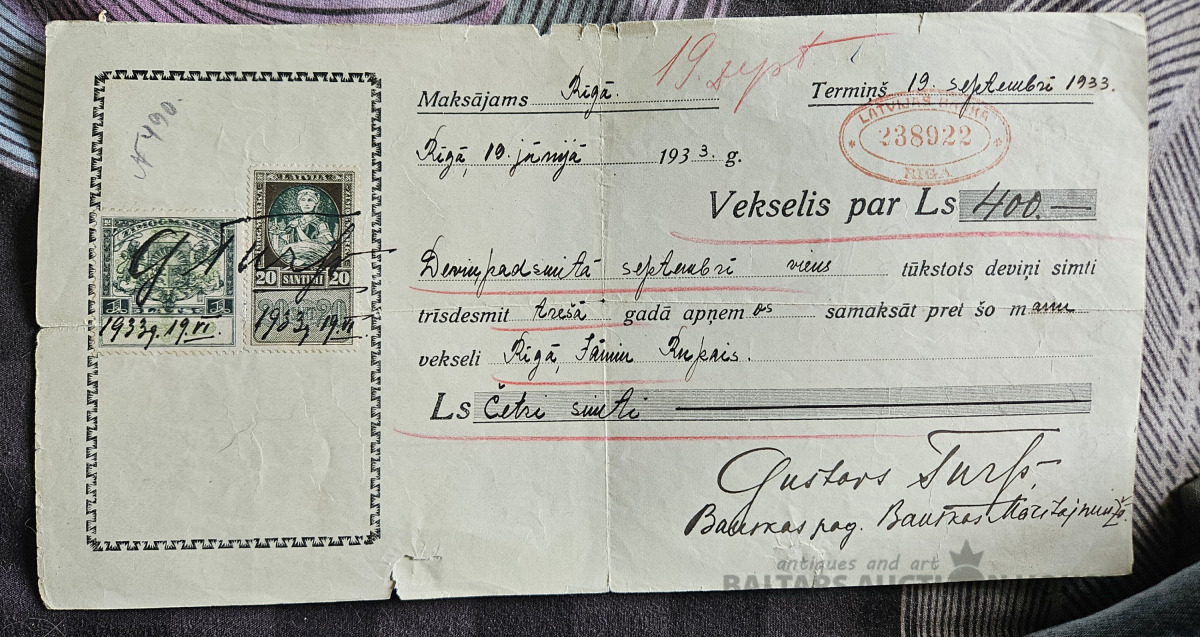 19. sept.
Maksājams Rīgā. Termiņš 19. septembrī 1933.
LATVIJAS BANKA
238922
RĪGA
Rīgā, 19. jūnijā 1933. g.
Vekselis par Ls 400.—
Deviņpadsmitā septembrī viens tūkstots deviņi simti
trīsdesmit trešā gadā apņemos samaksāt pret šo manu
vekseli Rīgā, Jānim Rupais.
Ls Četri simti
Gustavs
Bauskas pag. Bauskas
N 490.
ZĪMOGMARKA
1 1
LATVIJA
20 SANTIMI 20
1933g. 19.VI.
1933g. 19.VI.
antiques and art
BALTARS AUCTION